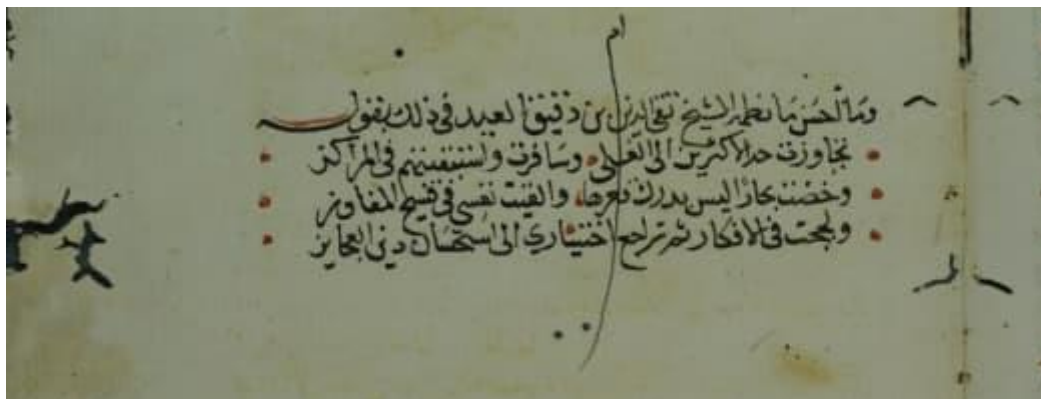 ام
وما احسن ما نظمه الشيخ تقي الدين بن دقيق العيد في ذلك بقوله
تجاوزت حد الاكثرين الى العلى وسافرت واستبقيتهم في المراكز
وخضت بحارا ليس يدرك قعرها والقيت نفسي في فسيح المفاوز
ولججت في الافكار ثم تراجع اختياري الى استحسان دين العجايز